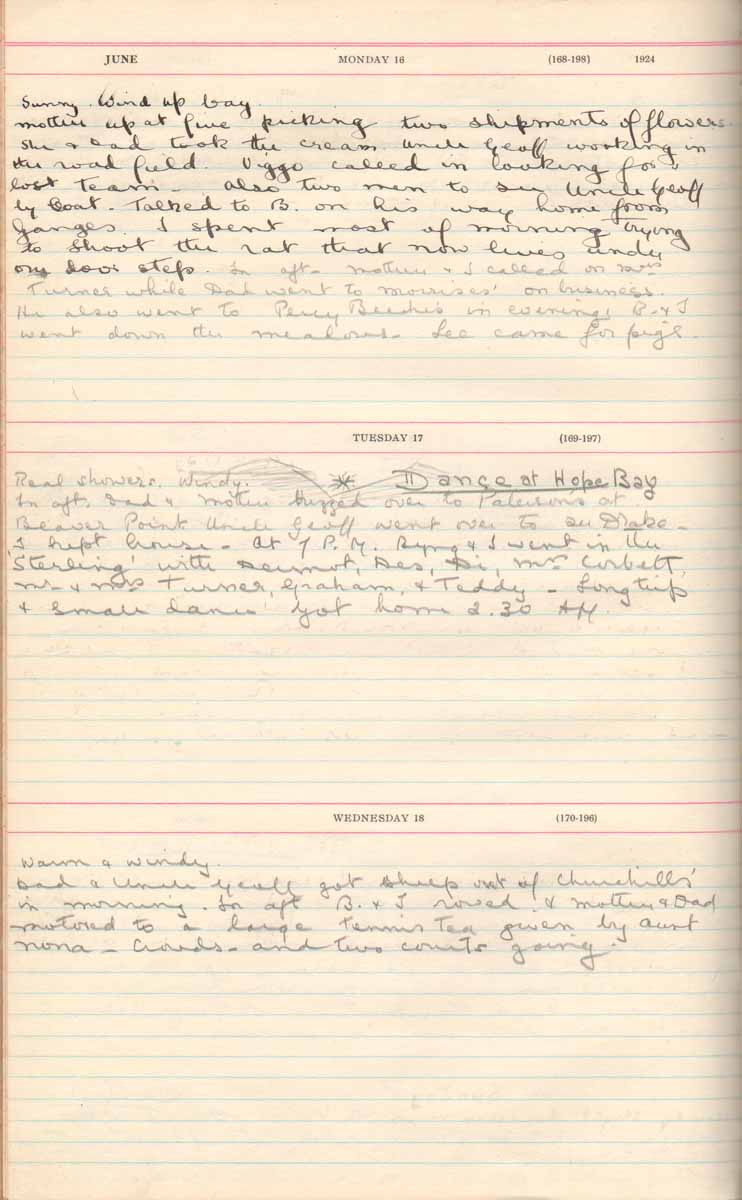 JUNE MONDAY 16 (168-198) 1924
Sunny. Wind up bay.
Mother up at five picking two shipments of flowers.
She & Dad took the cream. Uncle Geoff working in
the road field. Viggo called in looking for a
lost team - also two men to see Uncle Geoff
by boat. Talked to B. on his way home from
Ganges. I spent most of morning trying
to shoot the rat that now lives under
our door step. In aft. mother & I called on Mrs
Turner while Dad went to Morrises' on business.
He also went to Percy Beeches in evening. B. & I
went down the meadows. Lee came for pigs.
TUESDAY 17 (169-197)
Real showers. Windy. Dance at Hope Bay
In aft. Dad & Mother buzzed over to Paterson's at
Beaver Point Uncle Geoff went over to see Drake -
I kept house - At 7 P.M. Byng & I went in the
'Sterling' with Dermot, Des, Di, Mrs Corbett,
Mr & Mrs Turner, Graham, & Teddy - Long trip
& small dance got home 2.30 AM.
WEDNESDAY 18 (170-196)
Warm & windy.
Dad & Uncle Geoff got sheep out of Churchills'
in morning. In aft B. & I rowed & mother & Dad
motored to a large tennis tea given by Aunt
Nona - Crowds - and two courts going.